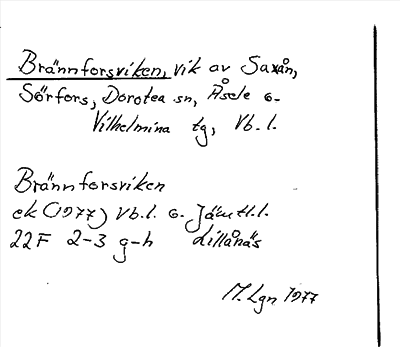 Brännforsviken, vik av Saxån,
Sörfors, Dorotea sn, Åsele o.
Vilhelmina tg, Vb. l.
Brännforsviken
ek (1977) Vb.l. o. Jämtl.l.
22F 2-3 g-h Lillånäs
M. Lgn 1977